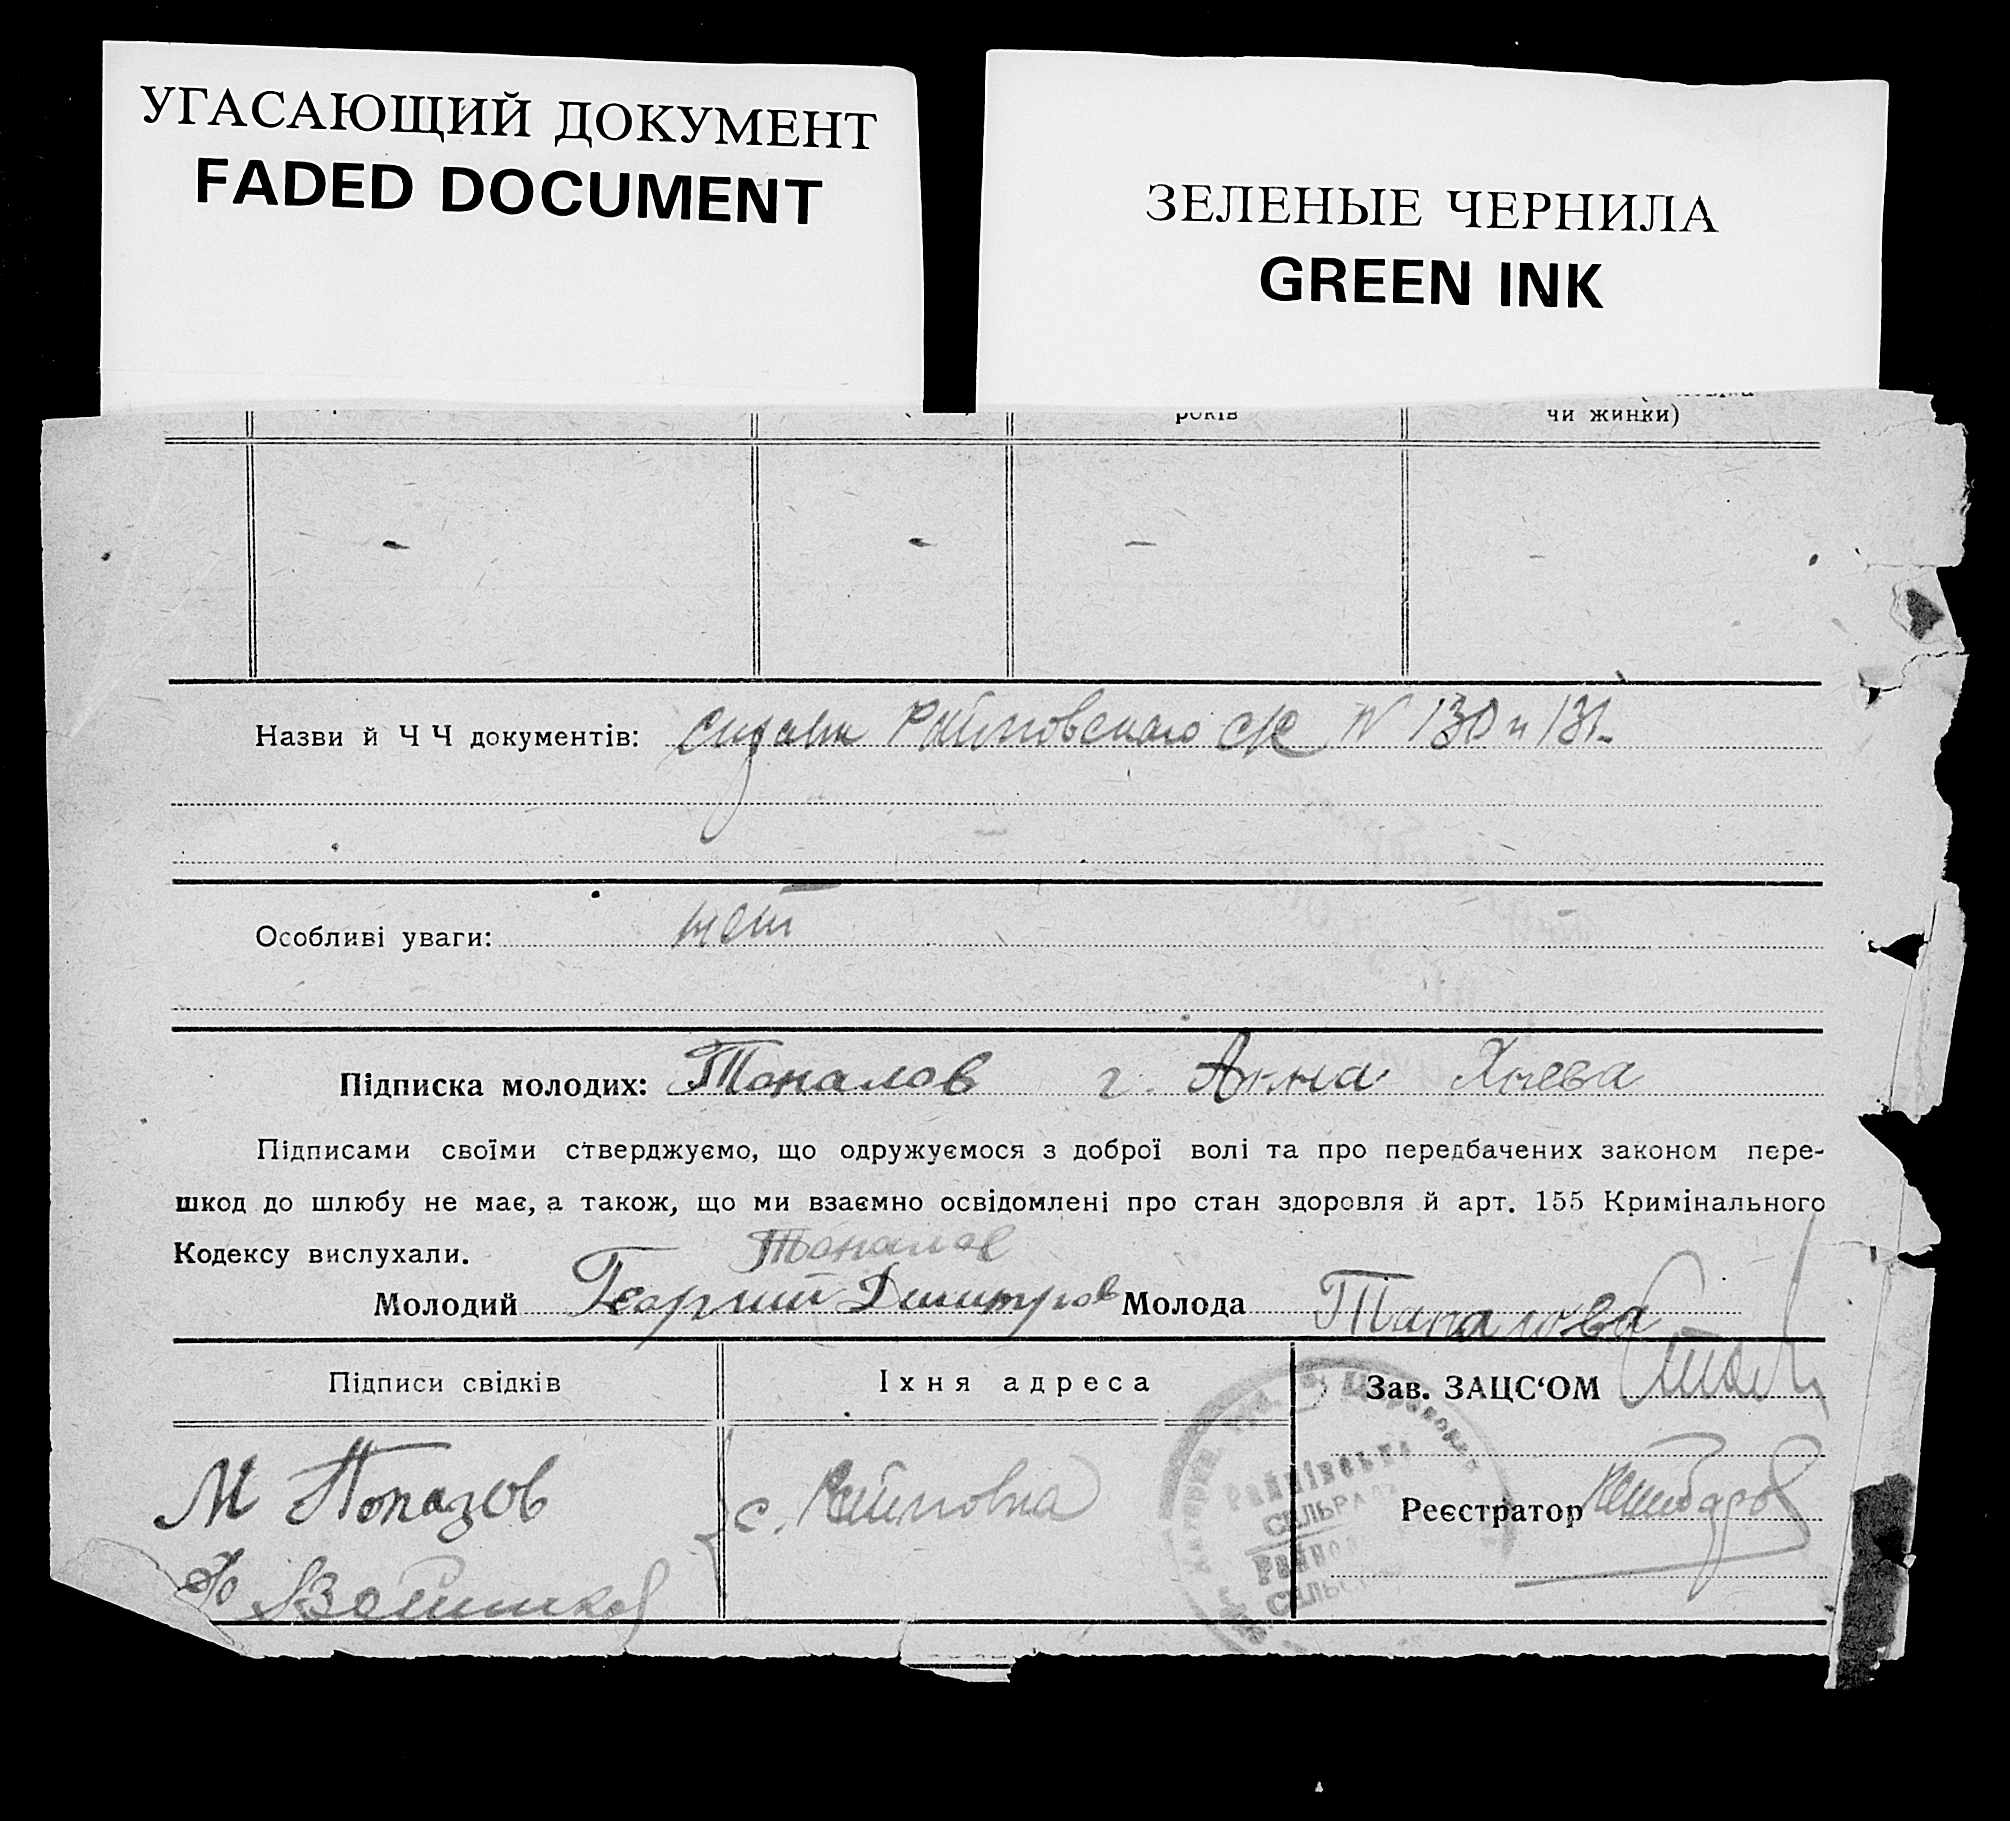 УГАСАЮЩИЙ ДОКУМЕНТ
FADED DOCUMENT
ЗЕЛЕНЫЕ ЧЕРНИЛА
GREEN INK
років
чи жинки)
- - - -
Назви й Ч Ч документів: с/к N 130 и 131
Особливі уваги: нет
Підписка молодих: Топалов г. Анна
Підписами своїми стверджуємо, що одружуємося з доброї волі та про передбачених законом пере-
шкод до шлюбу не має, а також, що ми взаємно освідомлені про стан здоровля й арт. 155 Кримінального
Кодексу вислухали.
Топалов
Молодий Георгий Дмитров Молода Тапалова
Підписи свідків Іхня адреса Зав. ЗАЦС‘ОМ
М Попазов с. Райновка Реєстратор
Райнівська
СІЛЬРАДА